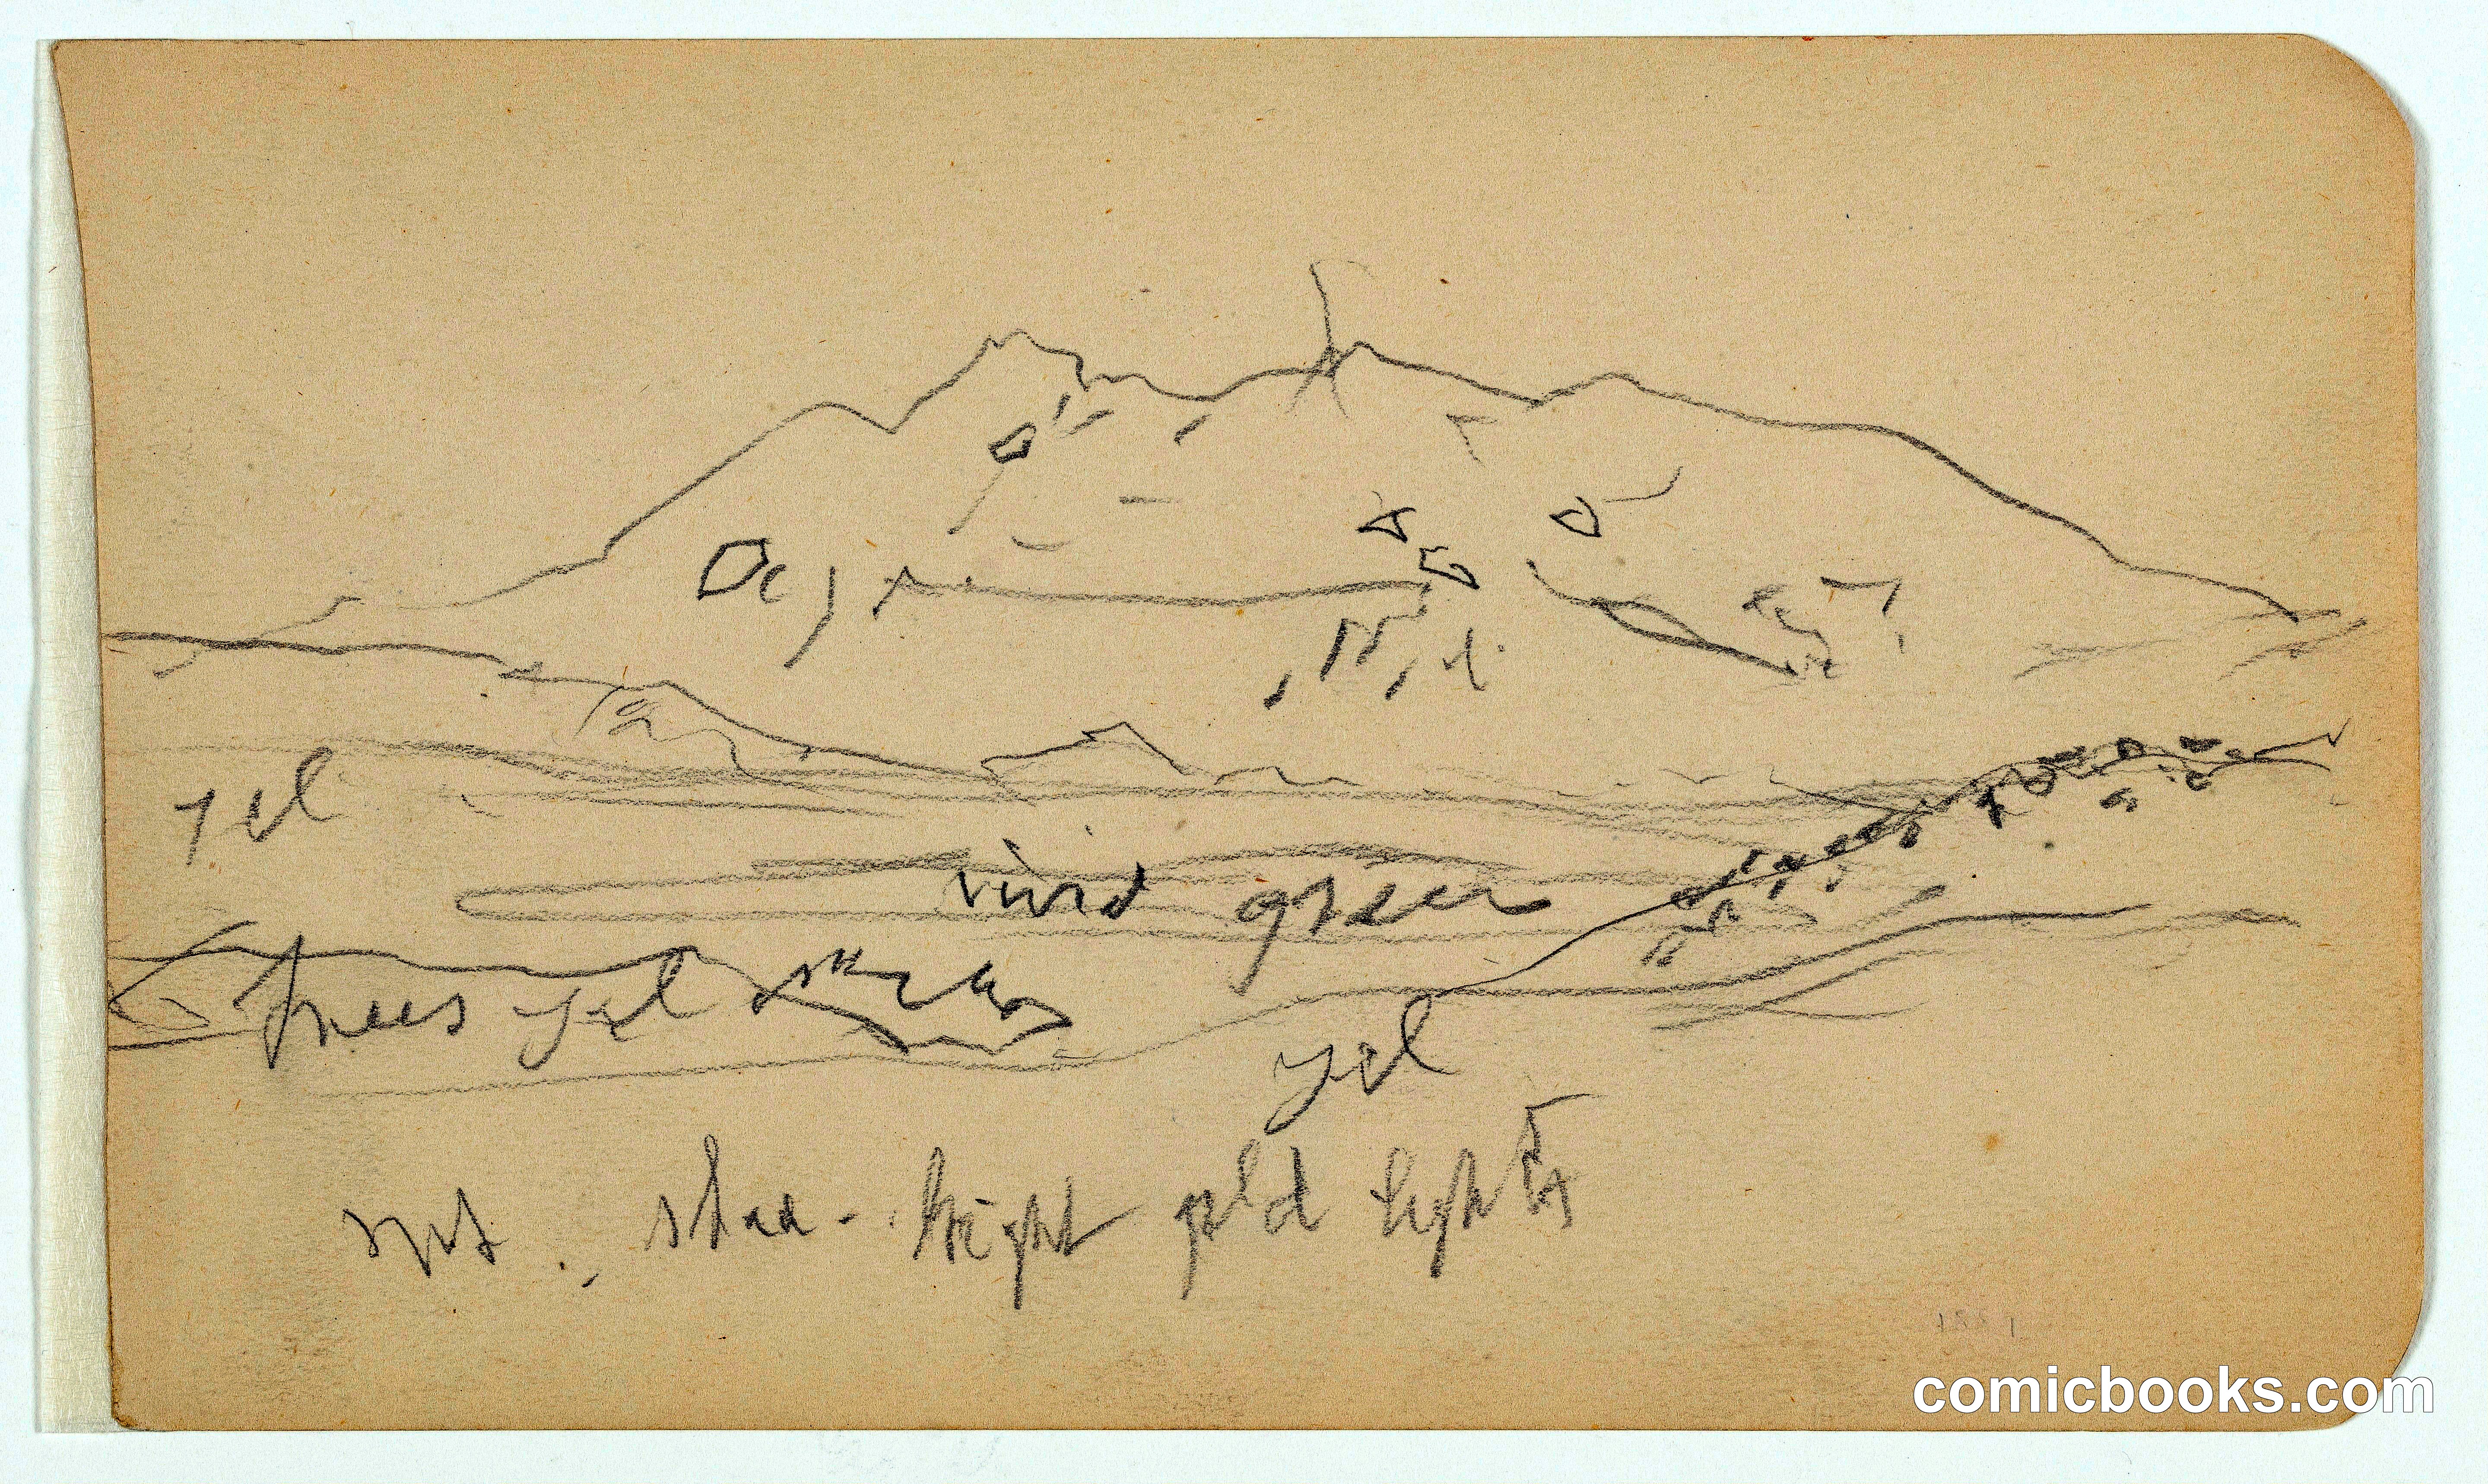 yel
vivid green
trees yel
yel
bright gold lights
comicbooks.com